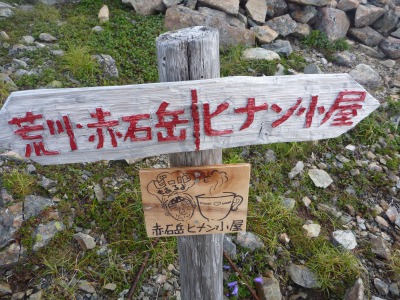 荒川・赤石岳 ヒナン小屋
赤石岳ヒナン小屋